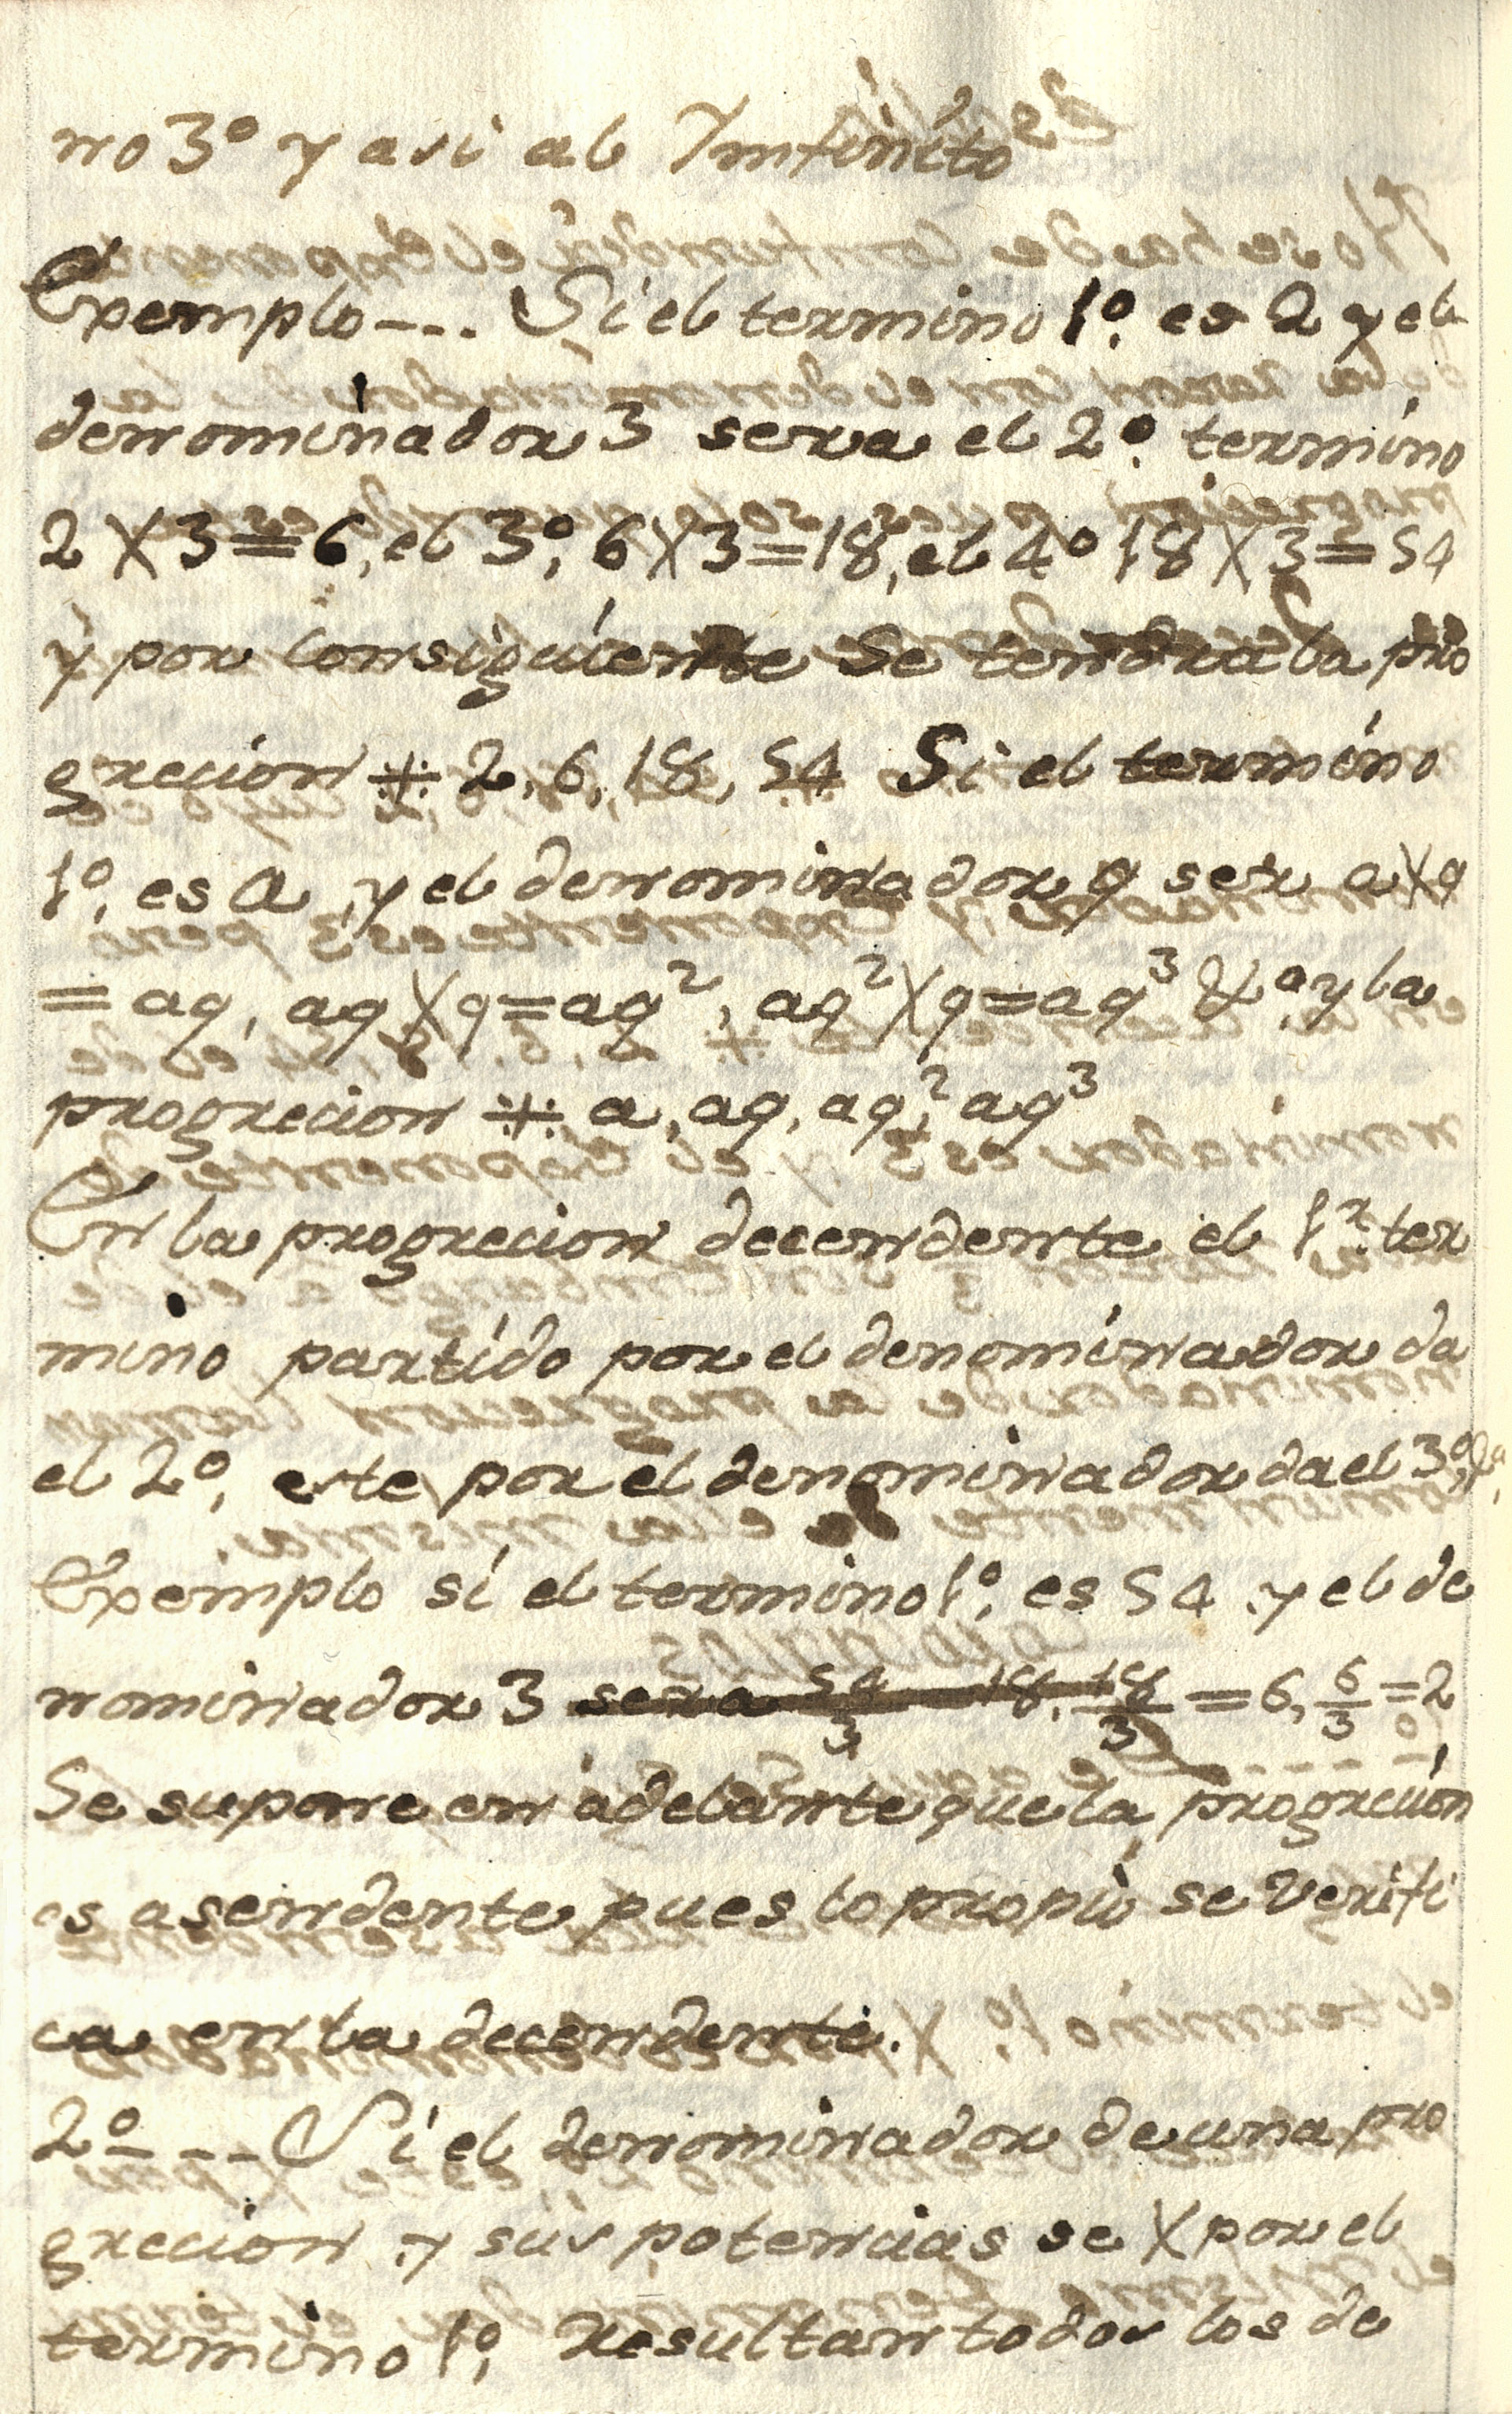 no 3º y asi al Ynfinito
Exemplo --- Si el termino 1º. es 2 y el
denominador 3 sera el 2º. termino
2 X 3 = 6, el 3º, 6 X 3 = 18, el 4º 18 X 3 = 54
y por consiguiente se tendra la pro
grecion ∺ 2, 6, 18, 54 Si el termino
1º, es a, y el denominador q ser a X q
= aq, aq X q = aq², aq² X q = aq³ &ª y la
progrecion ∺ a, aq, aq², aq³
En la progrecion decendente el 1r. ter
mino partido por el denominador da
el 2º, este por el denominador da el 3º, &ª,
Exemplo si el termino 1º, es 54 y el de
nominador 3 sera 54/3 = 18, 18/3 = 6, 6/3 = 2
Se supone en adelante que la progrecion
es asendente pues lo propio se verifi
ca en la decendente.
2º --- Si el denominador de una pro
grecion y sus potencias se X por el
termino 1º, resultan todos los de